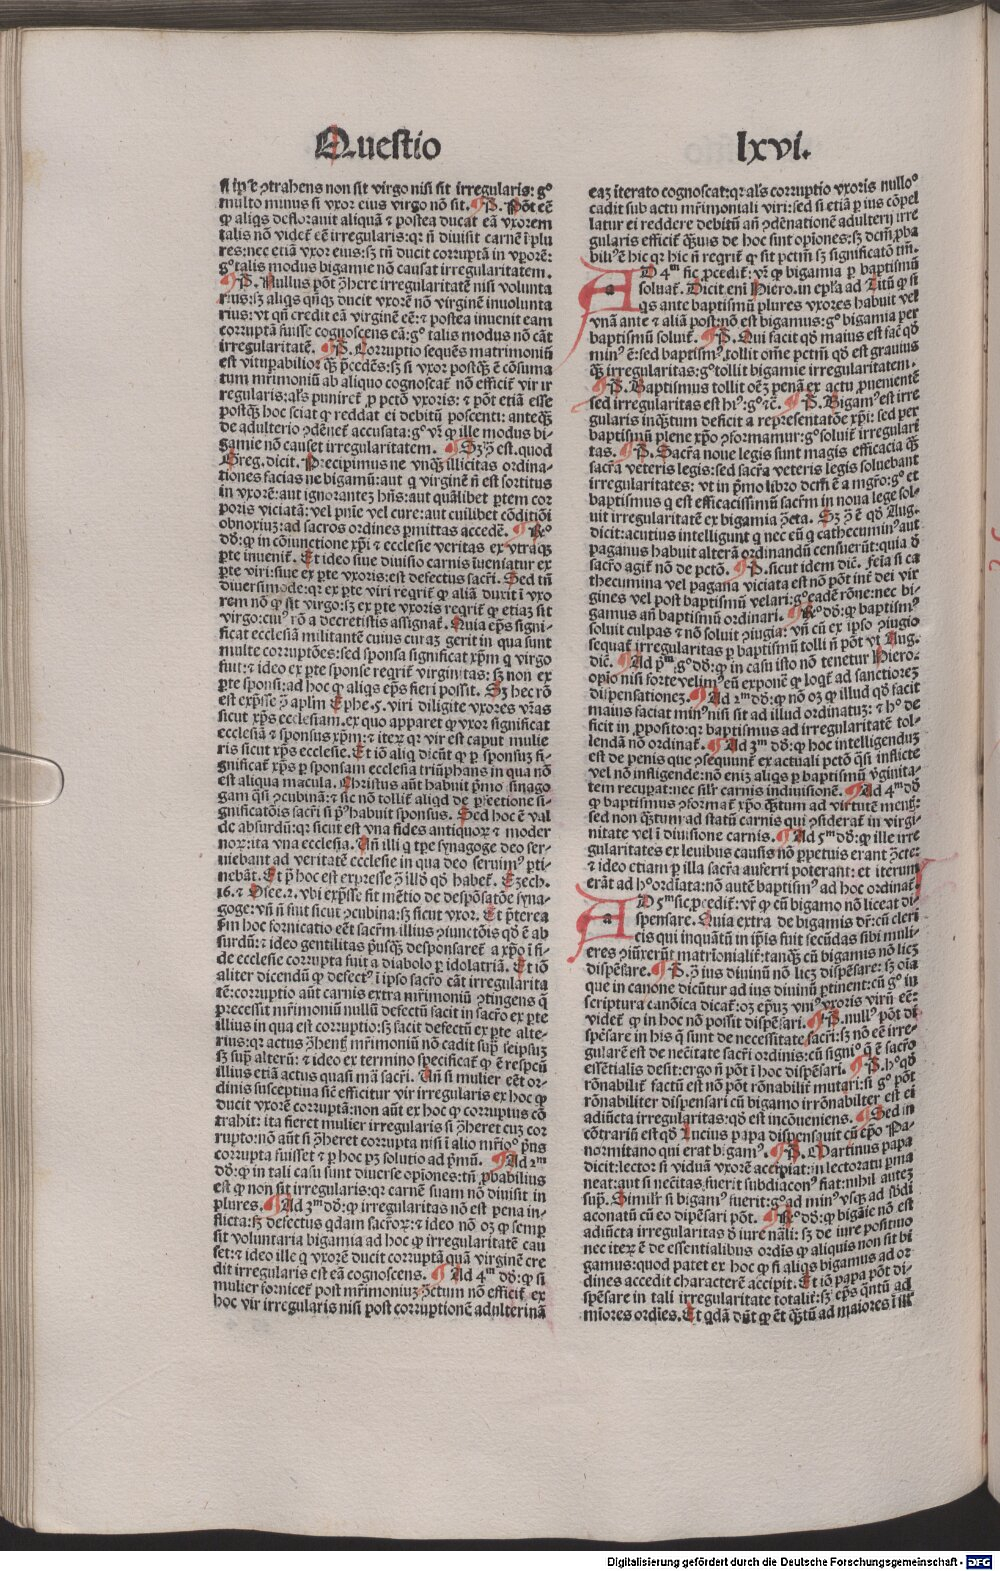 Questio lxvi.
si ip̄e ꝯtrahens non sit virgo nisi sit irregularis: gͦ
multo minus si vxor eius virgo nō sit. ¶ P̄. Pōt eē
ꝙ aliqs deflorauit aliquā ⁊ postea ducat eā vxorem
talis nō videt᷑ eē irregularis: qr nō diuisit carnē ī plu
res: nec etiā vxor eius: sꝫ tn̄ ducit corruptā in vxorē:
gͦ talis modus bigamie nō causat irregularitatem.
¶ P̄. Nullus pōt ꝯ̄here irregularitatē nisi volunta
rius: sꝫ aliqs qn̄qꝫ ducit vxorē nō virginē inuolunta
rius: vt qn̄ credit eā virginē eē: ⁊ postea inuenit eam
corruptā fuisse cognoscens eā: gͦ talis modus nō cāt
irregularitatē. ¶ P̄. Corruptio sequēs matrimoniū
est vitupabilior qꝫ p̄cedēs: sꝫ si vxor postqꝫ ē cōsuma
tum mr̄imoniū ab aliquo cognoscat᷑ nō efficit᷑ vir ir
regularis: als puniret᷑ ꝓ pctō vxoris: ⁊ pōt etiā esse
postqꝫ hoc sciat qr reddat ei debitū poscenti: anteqꝫ
de adulterio ꝯdēnet᷑ accusata: gͦ vr̄ ꝙ ille modus bi
gamie nō causet irregularitatem. ¶ Sꝫ ꝯ̄ est. quod
Greg. dicit. Precipimus ne vnqꝫ illicitas ordina-
tiones facias ne bigamū: aut q virginē nō est sortitus
in vxorē: aut ignorantez lr̄as: aut quālibet ꝑtem cor
poris viciatā: vel pn̄ie vel cure: aut cuilibet cōditiōi
obnoxiuꝫ: ad sacros ordines ꝑmittas accedē. ¶ Rͦ
dō: ꝙ in cōiunctione xp̄i ⁊ ecclesie veritas ex vtraqꝫ
ꝑte inuenit᷑. Et ideo siue diuisio carnis īueniatur ex
ꝑte viri: siue ex ꝑte vxoris: est defectus sacr̄i. Sed tn̄
diuersimode: qr ex ꝑte viri reqrit᷑ ꝙ aliā duxit ī vxo
rem nō ꝙ sit virgo: sꝫ ex ꝑte vxoris reqrit᷑ ꝙ etiaꝫ sit
virgo: cuiꝰ rō a decretistis assignat᷑. Quia ep̄s signi-
ficat ecclesiā militantē cuius curaꝫ gerit in qua sunt
multe corruptōes: sed sponsa significat xp̄m q virgo
fuit: ⁊ ideo ex ꝑte sponse reqrit᷑ virginitas: sꝫ non ex
ꝑte sponsi: ad hoc ꝙ aliqs ep̄s fieri possit. Sꝫ hec rō
est exp̄sse ꝯ̄ aplm Ephe. 5. viri diligite vxores vr̄as
sicut xp̄s ecclesiam. ex quo apparet ꝙ vxor significat
ecclesiā ⁊ sponsus xp̄m: ⁊ iteꝝ qr vir est caput mulie
ris sicut xp̄s ecclesie. Et iō aliq dicūt ꝙ ꝑ sponsuꝫ si-
gnificat᷑ xp̄s ꝑ sponsam ecclesia triūphans in qua nō
est aliqua macula. Christus aūt habuit pͥmo sinago
gam qsi ꝯcubinā: ⁊ sic nō tollit᷑ aliqd de ꝑfectione si-
gnificatōis sacr̄i si pͥꝰ habuit sponsus. Sed hoc ē val
de absurdū: qr sicut est vna fides antiquoꝝ ⁊ moder
noꝝ: ita vna ecclesia. Un̄ illi q tꝑe synagoge deo ser-
uiebant ad veritatē ecclesie in qua deo seruimꝰ ꝑti-
nebāt. Et ꝑ hoc est expresse ꝯ̄ illd qd habet᷑. Ezech.
16. ⁊ Osee. 2. vbi exp̄sse fit mētio de despōsatōe syna-
goge: vn̄ nō fuit sicut ꝯcubina: sꝫ sicut vxor. Et p̄terea
ẜm hoc fornicatio eēt sacr̄m illius ꝯiunctōis qd ē ab
surdū: ⁊ ideo gentilitas pͥusqꝫ desponsaret᷑ a xp̄o ī fi-
de ecclesie corrupta fuit a diabolo ꝑ idolatriā. Et iō
aliter dicendū ꝙ defectꝰ ī ipso sacr̄o cāt irregularita
tē: corruptio aūt carnis extra mr̄imoniū ꝯtingens q̄
precessit mr̄imoniū nullū defectū facit in sacr̄o ex ꝑte
illius in qua est corruptio: sꝫ facit defectū ex ꝑte alte-
rius: qr actus ꝯ̄hentꝫ mr̄imoniū nō cadit supͣ seipsuꝫ
sꝫ supͣ alterū: ⁊ ideo ex termino specificat᷑ ꝙ ē respcū
illius etiā actus quasi mā sacr̄i. Un̄ si mulier eēt or-
dinis susceptiua sic efficitur vir irregularis ex hoc ꝙ
ducit vxorē corruptā: non aūt ex hoc ꝙ corruptus cō
trahit: ita fieret mulier irregularis si ꝯ̄heret cuꝫ cor
rupto: nō aūt si ꝯ̄heret corrupta nisi ī alio mr̄ioͦ pͥus
corrupta fuisset ⁊ ꝑ hoc pꝫ solutio ad pͥmū. ¶ Ad 2ᵐ
dō: ꝙ in tali casu sunt diuerse opiones: tn̄ ꝓbabilius
est ꝙ non sit irregularis: qr carnē suam nō diuisit in
plures. ¶ Ad 3ᵐ dō: ꝙ irregularitas nō est pena in-
flicta: sꝫ defectus qdam sacroꝝ: ⁊ ideo nō oꝫ ꝙ semꝑ
sit voluntaria bigamia ad hoc ꝙ irregularitatē cau
set: ⁊ ideo ille q vxorē ducit corruptā quā virginē cre
dit irregularis est eā cognoscens. ¶ Ad 4ᵐ dō: ꝙ si
mulier fornicet᷑ post mr̄imoniuꝫ ꝯ̄ctum nō efficit᷑ ex
hoc vir irregularis nisi post corruptionē adulterinā
eaꝫ iterato cognoscat: qr als corruptio vxoris nulloͦ
cadit sub actu mr̄imoniali viri: sed si etiā ꝑ ius cōpel
latur ei reddere debitū an̄ ꝯdēnationē adulterij irre
gularis efficit᷑ qꝫuis de hoc sunt opiōes: sꝫ dcm̄ ꝓba
biliꝰ ē hic qr hic nō reqrit᷑ ꝙ sit pctm̄ sꝫ significatō tm̄.
AD 4ᵐ sic ꝓcedit᷑: vr̄ ꝙ bigamia ꝑ baptismū
soluat᷑. Dicit eni Hiero. in epla ad Titū ꝙ si
qs ante baptismū plures vxores habuit vel
vnā ante ⁊ aliā post: nō est bigamus: gͦ bigamia per
baptismū soluit᷑. ¶ P̄. Qui facit qd maius est fac̄ qd
minꝰ ē: sed baptismꝰ tollit om̄e pctm̄ qd est grauius
qꝫ irregularitas: gͦ tollit bigamie irregularitatem.
¶ P̄. Baptismus tollit oēꝫ penā ex actu ꝓuenientē
sed irregularitas est hiꝰ: gͦ ⁊c̄. ¶ P̄. Bigamꝰ est irre
gularis inqꝫtum deficit a rep̄sentatōe xp̄i: sed per
baptismū plene xp̄o ꝯformamur: gͦ soluit᷑ irregulari
tas. ¶ P̄. Sacr̄a noue legis sunt magis efficacia qꝫ
sacr̄a veteris legis: sed sacr̄a veteris legis soluebant
irregularitates: vt in pͥmo libro dcm̄ ē a mgr̄o: gͦ et
baptismus q est efficacissimū sacr̄m in noua lege sol-
uit irregularitatē ex bigamia ꝯ̄cta. Sꝫ ꝯ̄ ē qd Aug.
dicit: acutius intelligunt q nec eū q cathecuminꝰ aut
paganus habuit alterā ordinandū censuerūt: quia d̄
sacr̄o agit᷑ nō de pctō. ¶ P̄. sicut idem dic̄. feīa si ca
thecumina vel pagana viciata est nō pōt int̄ dei vir
gines vel post baptismū velari: gͦ eadē rōne: nec bi-
gamus an̄ baptismū ordinari. ¶ Rͦ dō: ꝙ baptismꝰ
soluit culpas ⁊ nō soluit ꝯiugia: vn̄ cū ex ipso ꝯiugio
sequat᷑ irregularitas ꝑ baptismū tolli nō pōt vt Aug.
dic̄. ¶ Ad pͥm gͦ dō: ꝙ in casu isto nō tenetur Hiero-
opio nisi forte velimꝰ eū exponē ꝙ loqt᷑ ad sanctioreꝫ
dispensationeꝫ. ¶ Ad 2ᵐ dō: ꝙ nō oꝫ ꝙ illud qd facit
maius faciat minꝰ nisi sit ad illud ordinatuꝫ: ⁊ hͦ de
ficit in ꝓposito: qr baptismus ad irregularitatē tol-
lendā nō ordinat᷑. ¶ Ad 3ᵐ dō: ꝙ hoc intelligenduꝫ
est de penis que ꝯsequunt᷑ ex actuali pctō qsi inflicte
vel nō infligende: nō eniꝫ aliqs ꝑ baptismū v̓ginita-
tem recuꝑat: nec sil̓r carnis indiuisionē. ¶ Ad 4ᵐ dō
ꝙ baptismus ꝯformat᷑ xp̄o qꝫtum ad virtutē mentꝭ:
sed non qꝫtum ad statū carnis qui ꝯsiderat᷑ in virgi-
nitate vel ī diuisione carnis. ¶ Ad 5ᵐ dō: ꝙ ille irre
gularitates ex leuibus causis nō ꝑpetuis erant ꝯ̄cte:
⁊ ideo etiam ꝑ illa sacr̄a auferri poterant: et iterum
erāt ad hͦ ordīata: nō autē baptismꝰ ad hoc ordinat᷑.
AD 5ᵐ sic ꝓcedit᷑: vr̄ ꝙ cū bigamo nō liceat di-
spensare. Quia extra de bigamis dr̄: cū cleri
cis qui inquātū in ip̄is fuit secūdas sibi muli-
eres ꝯiūxerūt matrīonialit᷑: tanqꝫ cū bigamis nō licꝫ
dispēsare. ¶ P̄. ꝯ̄ ius diuinū nō licꝫ dispēsare: sꝫ oīa
que in canone dicūtur ad ius diuinū ꝑtinent: cū gͦ in
scriptura canōica dicat᷑: oꝫ ep̄uꝫ vniꝰ vxoris virū eē:
videt᷑ ꝙ in hoc nō possit dispēsari. ¶ P̄. nullꝰ pōt di
spēsare in his q̄ sunt de necessitate sacr̄i: sꝫ nō eē irre-
gularē est de nēc̄itate sacr̄i ordinis: cū signiͦ q̄ ē sacr̄o
essētialis desit: ergo nō pōt ī hoc dispēsari. ¶ P̄. hͦ qd
rōnabilit᷑ factū est nō pōt rōnabilit᷑ mutari: si gͦ pōt
rōnabiliter dispensari cū bigamo irrōnabiliter est ei
adiūcta irregularitas: qd est incōueniens. ¶ Sed in
cōtrariū est qd Lucius papa dispensauit cū ep̄o Pa-
normitano qui erat bigamꝰ. ¶ P̄. Martinus papa
dicit: lector si viduā vxorē accipiat: in lectoratu ꝑma
neat: aut si nēc̄itas fuerit subdiaconꝰ fiat: nihil auteꝫ
supͣ. Similr̄ si bigamꝰ fuerit: gͦ ad minꝰ vsqꝫ ad sbd̄i
aconatū cū eo dipēsari pōt. ¶ Rͦ dō: ꝙ bigāie nō est
adiūcta irregularitas d̄ iure nāli: sꝫ de iure positiuo
nec iteꝝ ē de essentialibus ordīs ꝙ aliquis non sit bi
gamus: quod patet ex hoc ꝙ si aliqs bigamus ad or
dines accedit characterē accipit. Et iō papa pōt di-
spēsare in tali irregularitate totalit᷑: sꝫ ep̄s qntū ad
miores ordīes. Et qdā dn̄t ꝙ et qꝫtū ad maiores ī ill
Digitalisierung gefördert durch die Deutsche Forschungsgemeinschaft - DFG